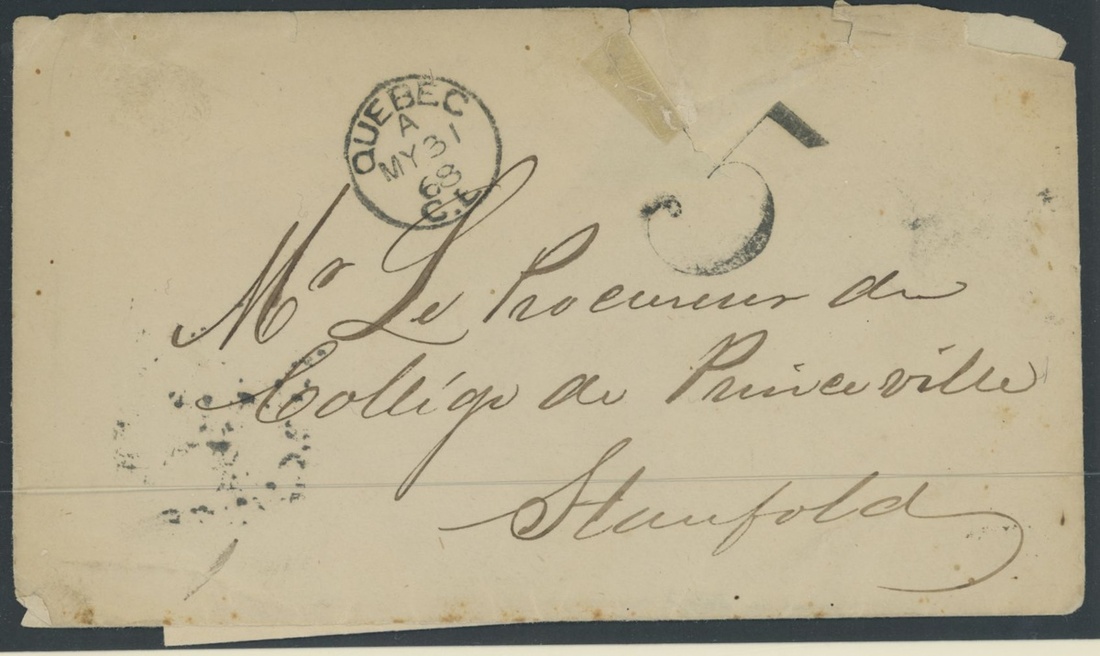 QUEBEC
A
MY 31
68
C.E
5
Mr Le Procureur du
Collége de Princeville
Stanfold